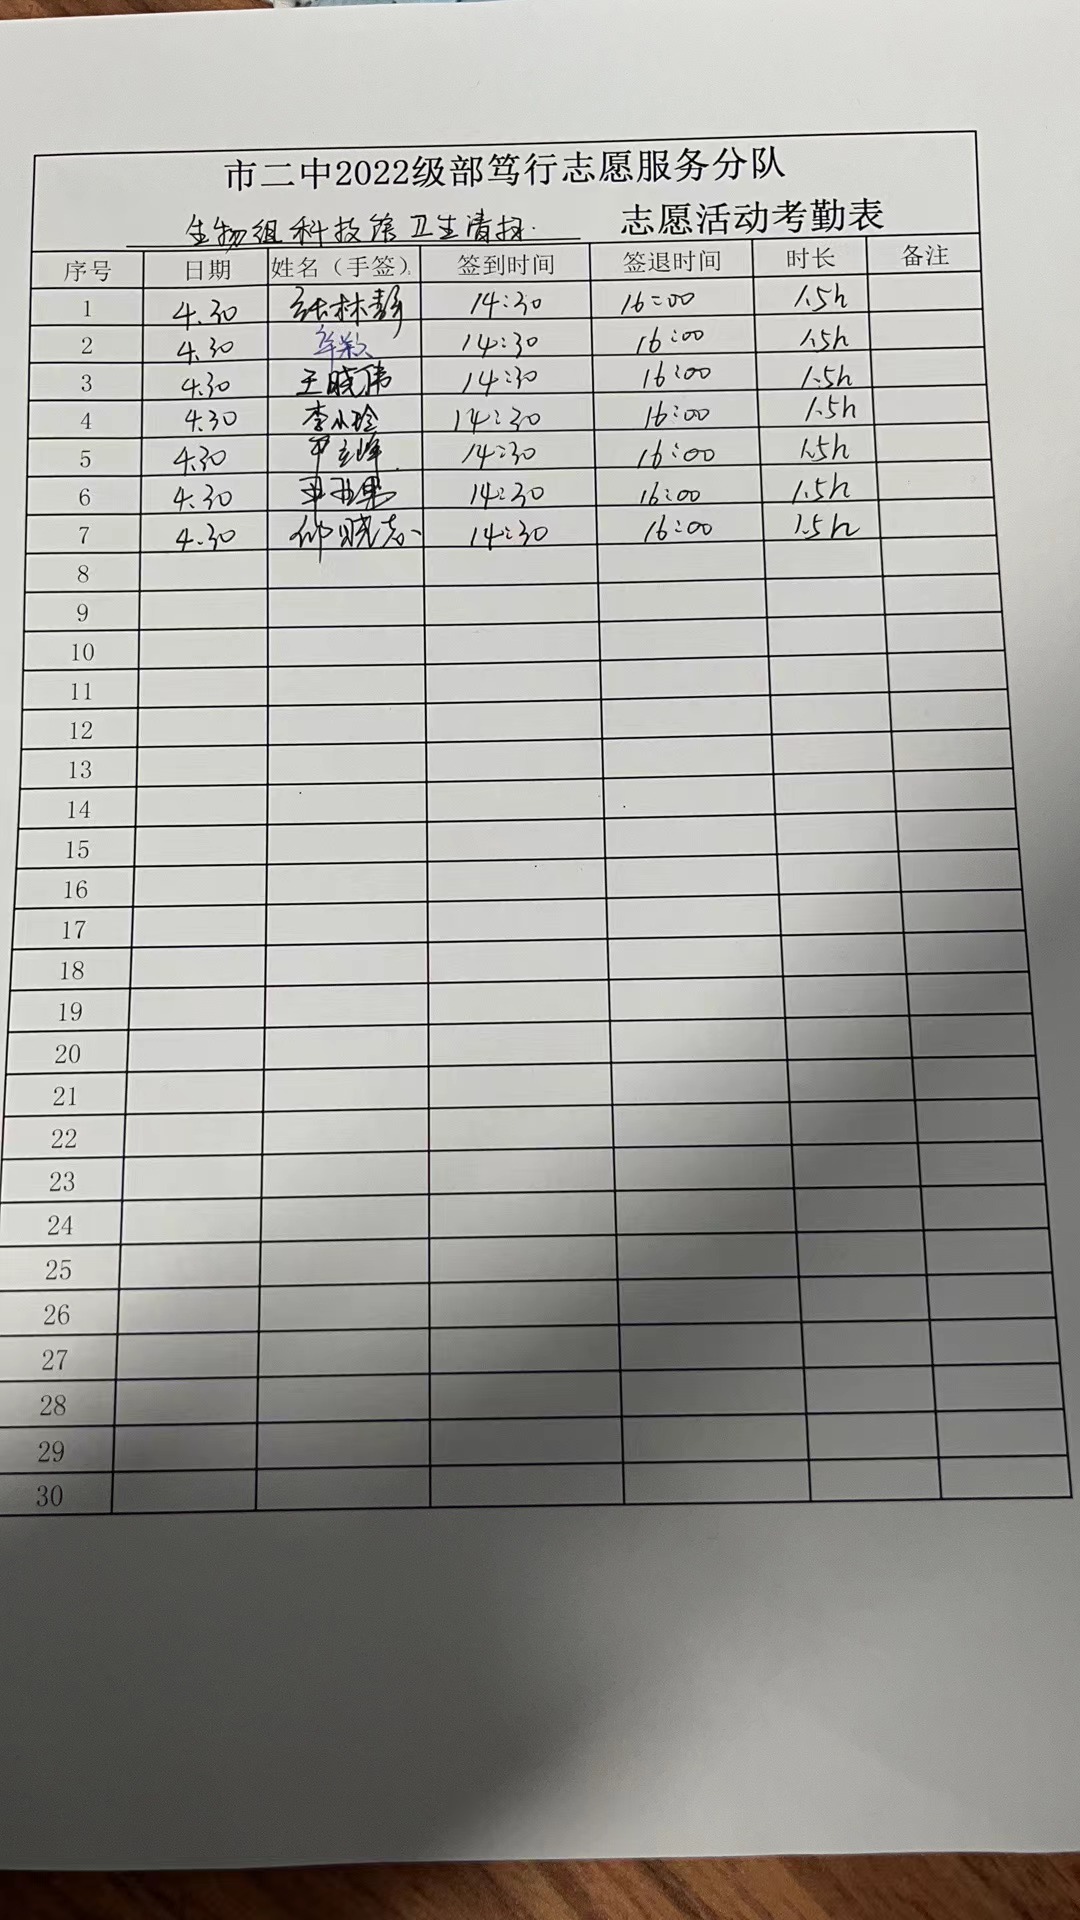 市二中2022级部笃行志愿服务分队
生物组科技馆卫生清扫. 志愿活动考勤表
序号 日期 姓名（手签） 签到时间 签退时间 时长 备注
1 4.30 张林静 14:30 16:00 1.5h
2 4.30 14:30 16:00 1.5h
3 4.30 王晓伟 14:30 16:00 1.5h
4 4.30 李小玲 14:30 16:00 1.5h
5 4.30 14:30 16:00 1.5h
6 4.30 14:30 16:00 1.5h
7 4.30 14:30 16:00 1.5h
8
9
10
11
12
13
14
15
16
17
18
19
20
21
22
23
24
25
26
27
28
29
30